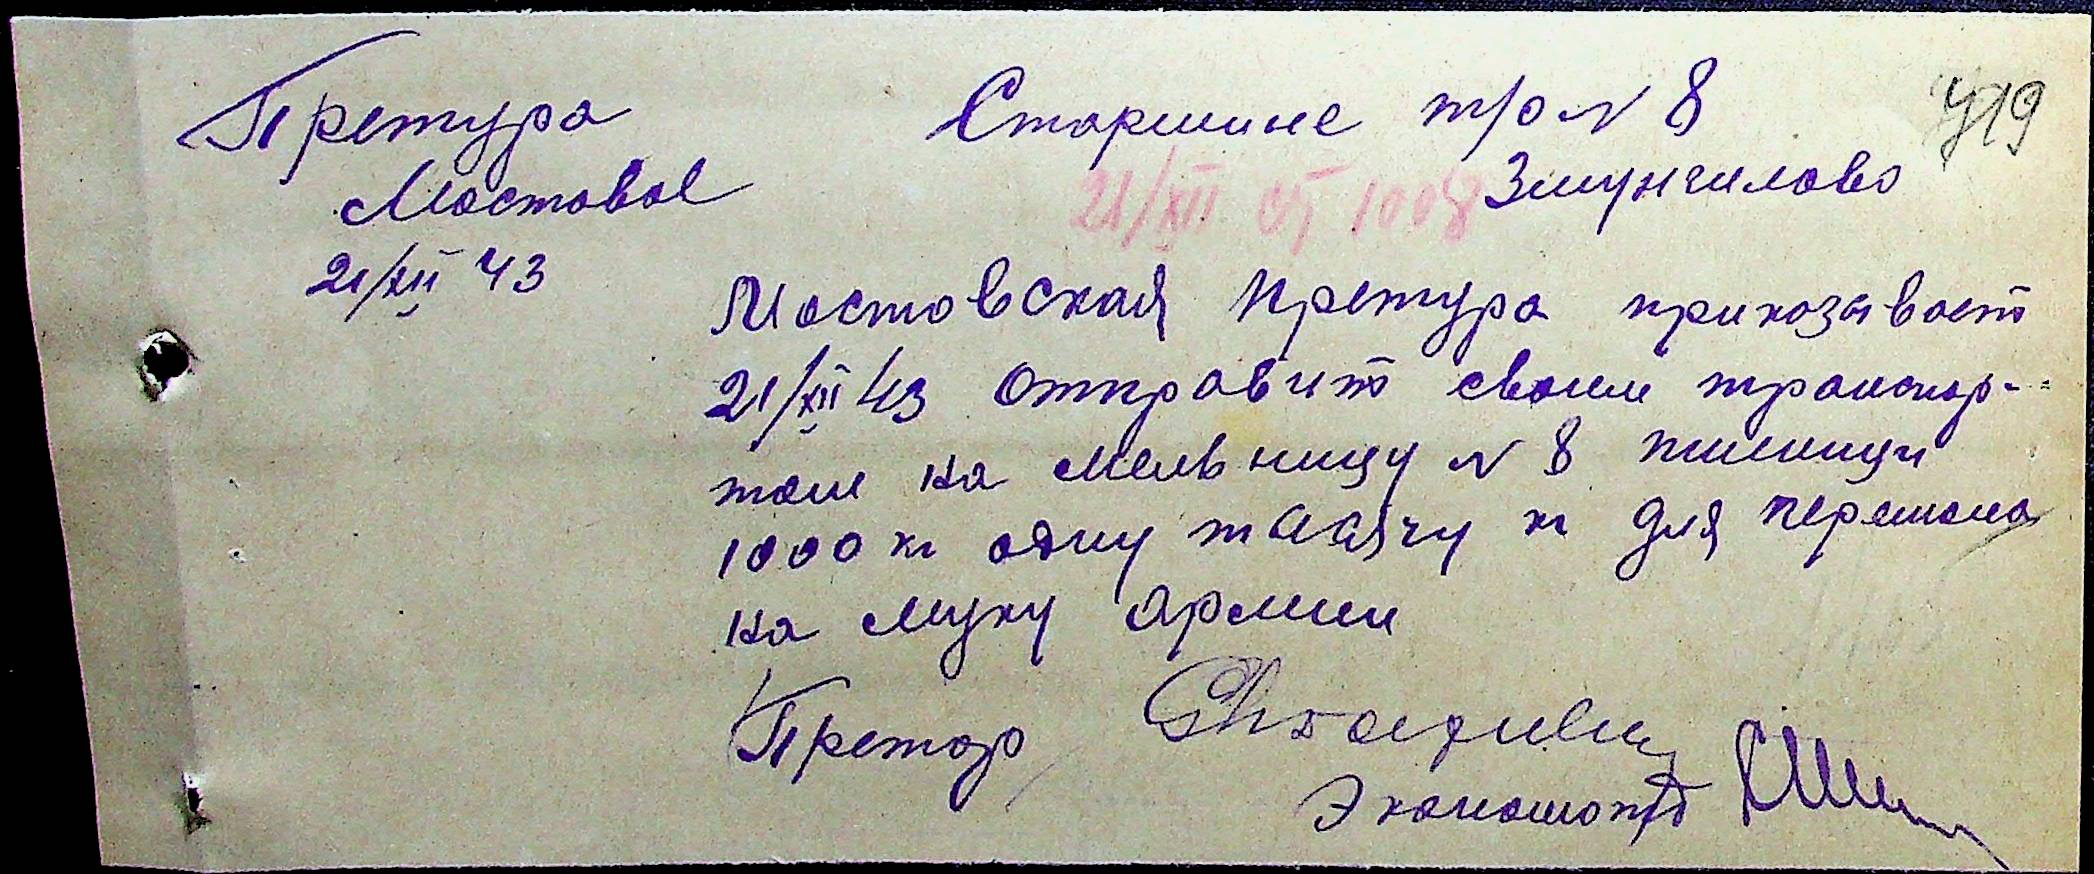 Претура
Мостовое
21/XII 43
Старшине т/о N 8
Змунчилово
419
21/XII 43 1008
Мостовская претура приказывает
21/XII 43 отправит своим транспор-
том на мельницу N 8 пшеници
1000 кг одну тысячу кг для перемола
на муку армии
Претор
Экономот